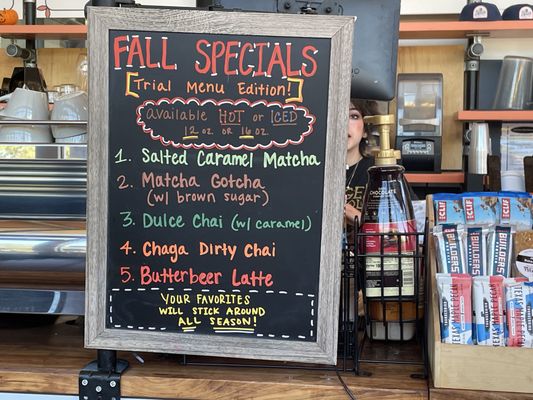 FALL SPECIALS
[Trial Menu Edition!]
available HOT or ICED
12 oz OR 16 oz
1. Salted Caramel Matcha
2. Matcha Gotcha
(w/ brown sugar)
3. Dulce Chai (w/ caramel)
4. Chaga Dirty Chai
5. Butterbeer Latte
YOUR FAVORITES
WILL STICK AROUND
ALL SEASON!
CHOCOLATE
CLIF
CLIF
CLIF
BUILDERS
BUILDERS
BUILDERS